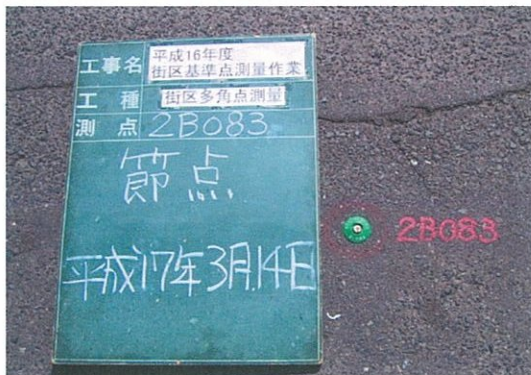 工事名 平成16年度
街区基準点測量作業
工種 街区多角点測量
測点 2B083
節点
平成17年3月14日
2B083